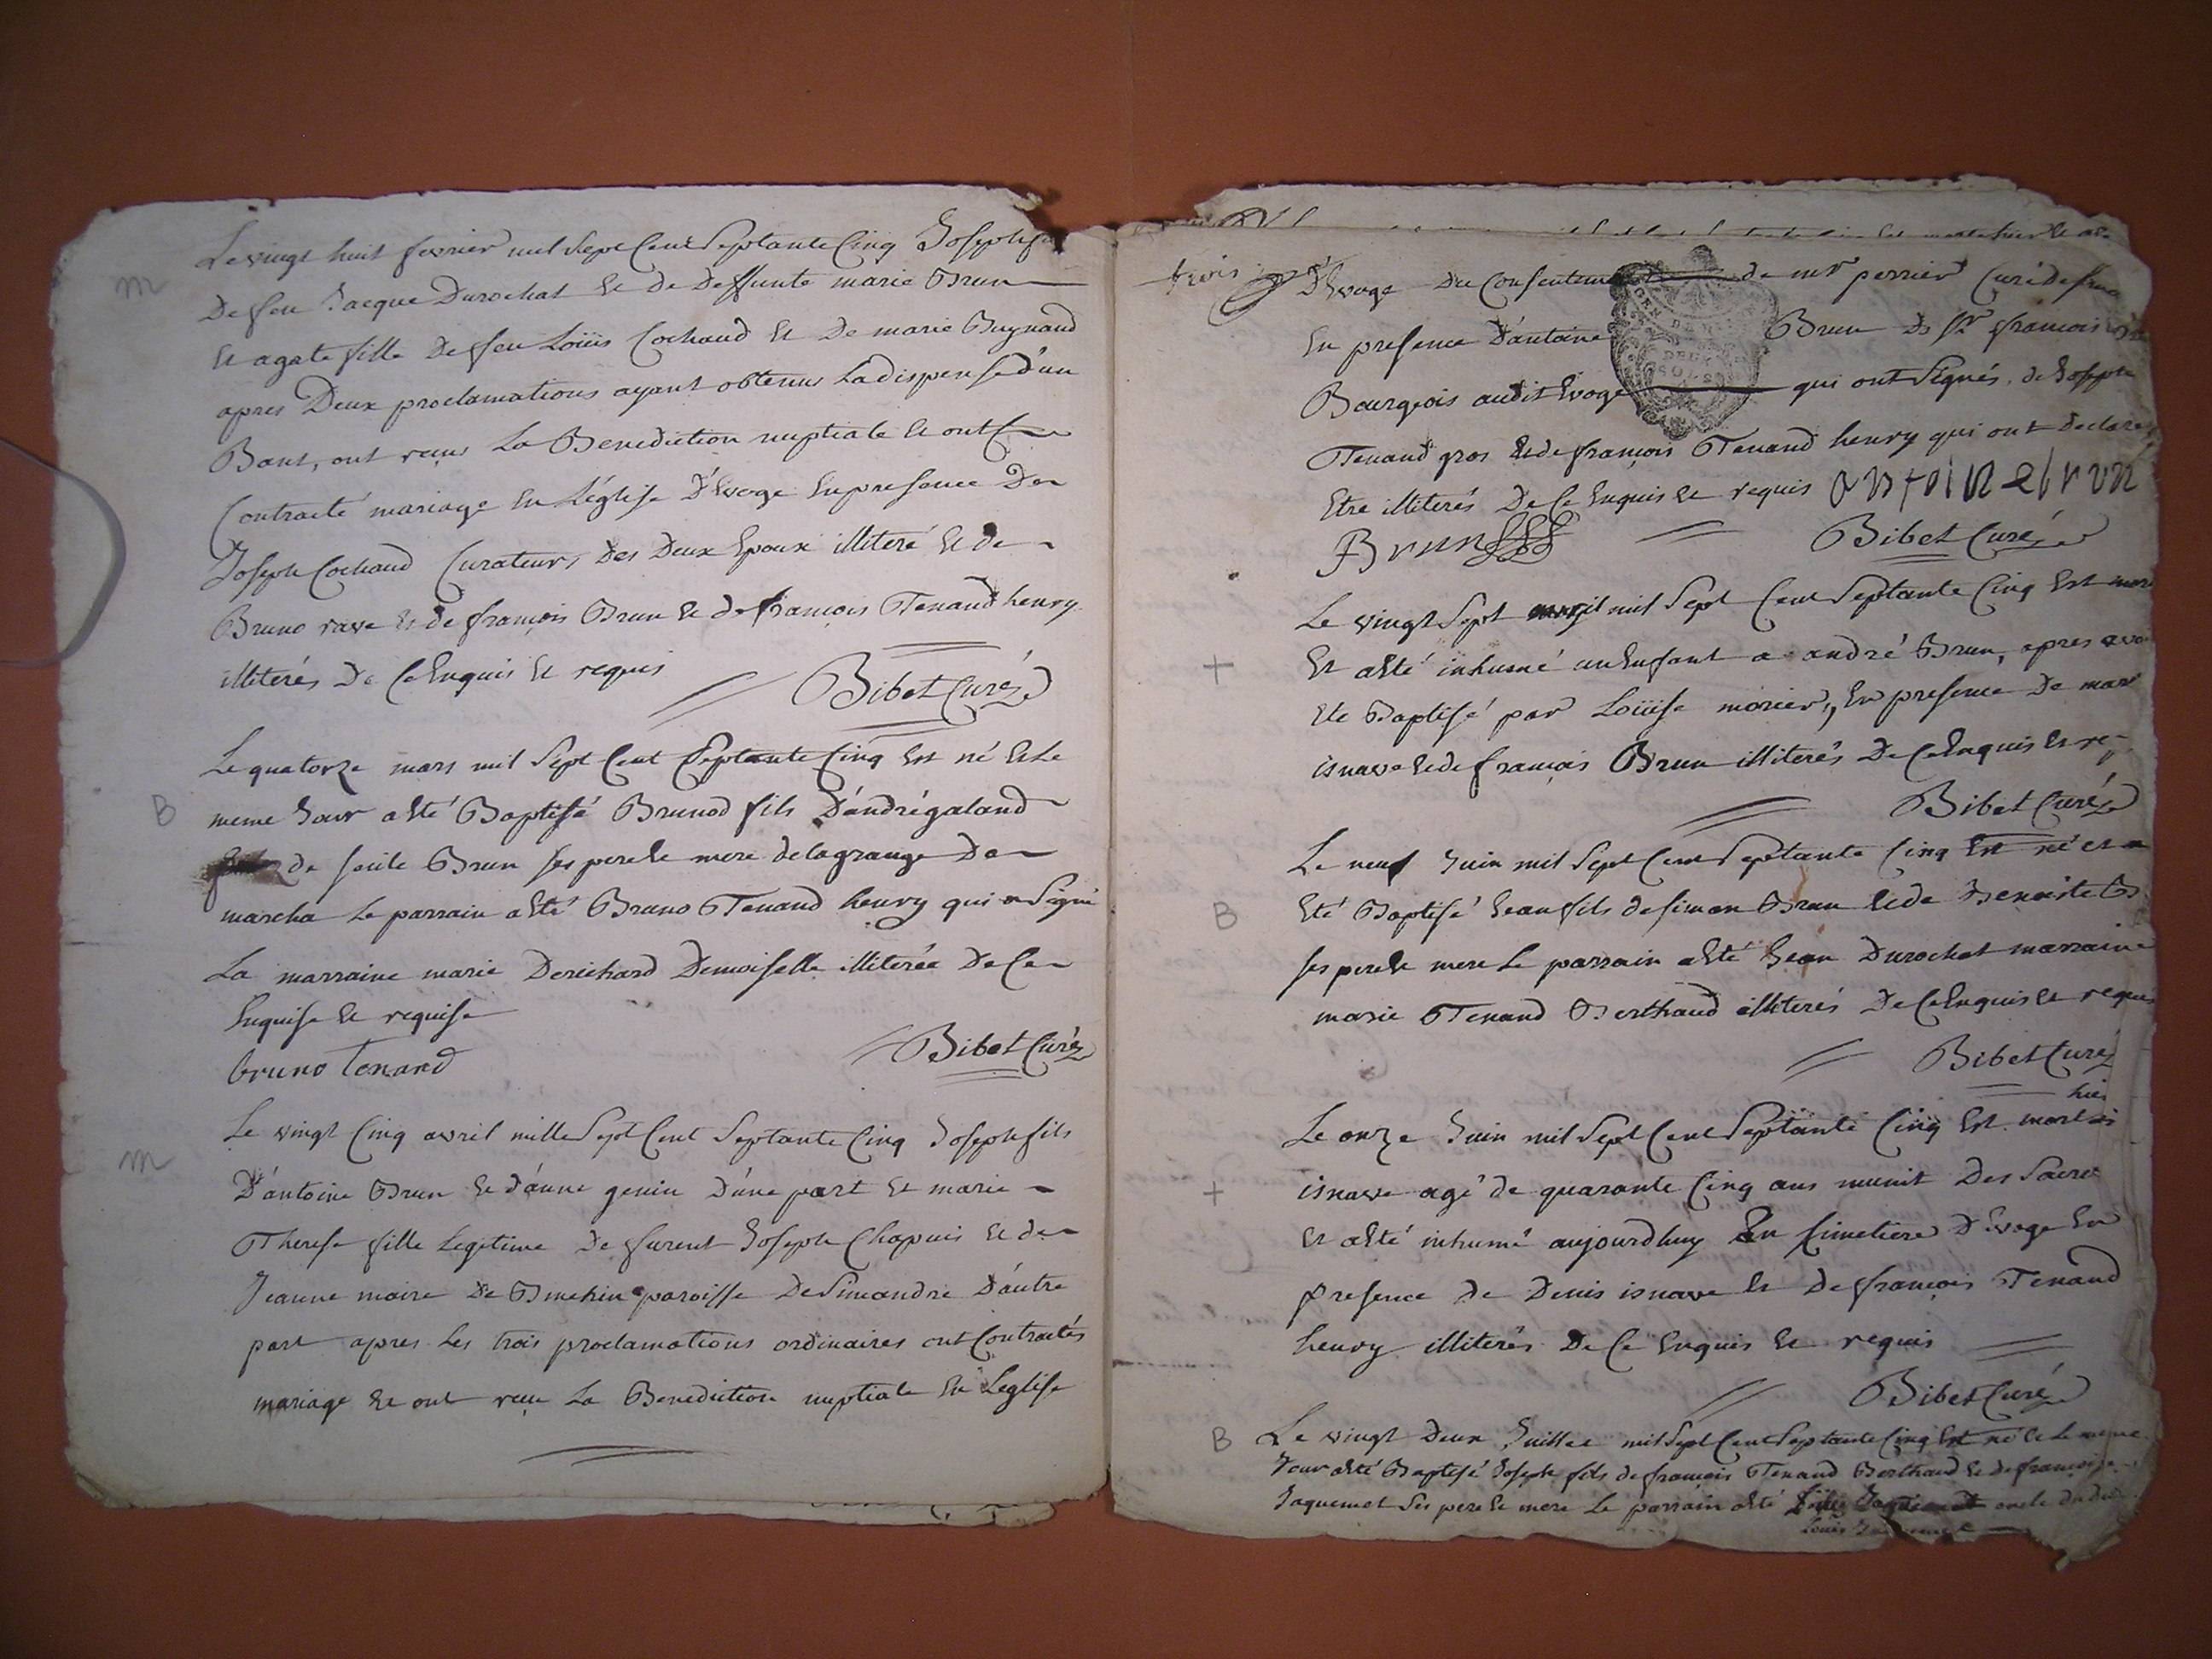 Le vingt huit fevrier mil sept Cent Septante Cinq Joseph fi
De feu Jacque Durochat et de Deffunte marie Brun
et agate fille De feu Loüis Cochaud et De marie Buynaud
apres Deux proclamations ayant obtenus La dispense d'un
Bant, ont reçus La Benediction nuptiale et ont
Contracté mariage En L'église D'Evoge En presence De
Joseph Cochaud Curateur, Des Deux Epoux illiteré et de
Bruno rave et de françois Brun et de françois Tenand henry
illiterés De Ce Enquis et requis
Bibet Curé
m
Le quatorze mars mil Sept Cent Septante Cinq Est né et Le
meme Jour a été Baptisé Brunod fils D'andré galand
de seule Brun ses pere et mere de la grange De
marcha Le parrain a été Bruno Tenand henry qui a Signé
La marraine marie Derichard Demoiselle illiterée De Ce
Enquise et requise
bruno Tenand
Bibet Curé
B
Le vingt Cinq avril mille Sept Cent Septante Cinq Joseph fils
D'antoine Brun et d'anne genin D'une part et marie
Therese fille Legitime De furent Joseph Chapuis et de
Jeanne moire De paroisse De Simandre D'autre
part apres Les trois proclamations ordinaires ont Contractés
mariage et ont reçu La Benediction nuptiale En L'eglise
m
trois
D'Evoge Du Consentement de mr perrier Curé de
En presence D'antoine Brun De Sr françois
Bourgeois audit Evoge qui ont Signés, de Joseph
Tenand gros et de françois Tenand henry qui ont Declaré
Etre illiterés De Ce Enquis et requis antoine brun
Brun
Bibet Curé
Le vingt Sept avril mil Sept Cent Septante Cinq Est mort
Et a été inhumé un Enfant a andré Brun, apres avoi
Eté Baptisé par Loüise morier, En presence De
isnave et de françois Brun illiterés De Ce Enquis et
Bibet Curé
+
Le neuf Juin mil Sept Cent Septante Cinq Est né et a
Eté Baptisé Jean fils de simon Brun et de Benoiste B
ses pere et mere Le parrain a été Jean Durochat marraine
marie Tenand Berthaud illiterés De Ce Enquis et requis
Bibet Curé
B
hier
Le onze Juin mil Sept Cent Septante Cinq Est mort
isnave agé de quarante Cinq ans munit Des Sacre
Et a été inhumé aujourd'huy au Cimetiere D'Evoge En
presence De Denis isnave et De françois Tenand
henry illiterés De Ce Enquis et requis
Bibet Curé
+
B
Le vingt Deux Juillet mil Sept Cent Septante Cinq Est né et Le meme
Jour a été Baptisé Joseph fils de françois Tenand Berthaud et de françoise
Jaquemet Ses pere et mere Le parrain a été oncle
Louis